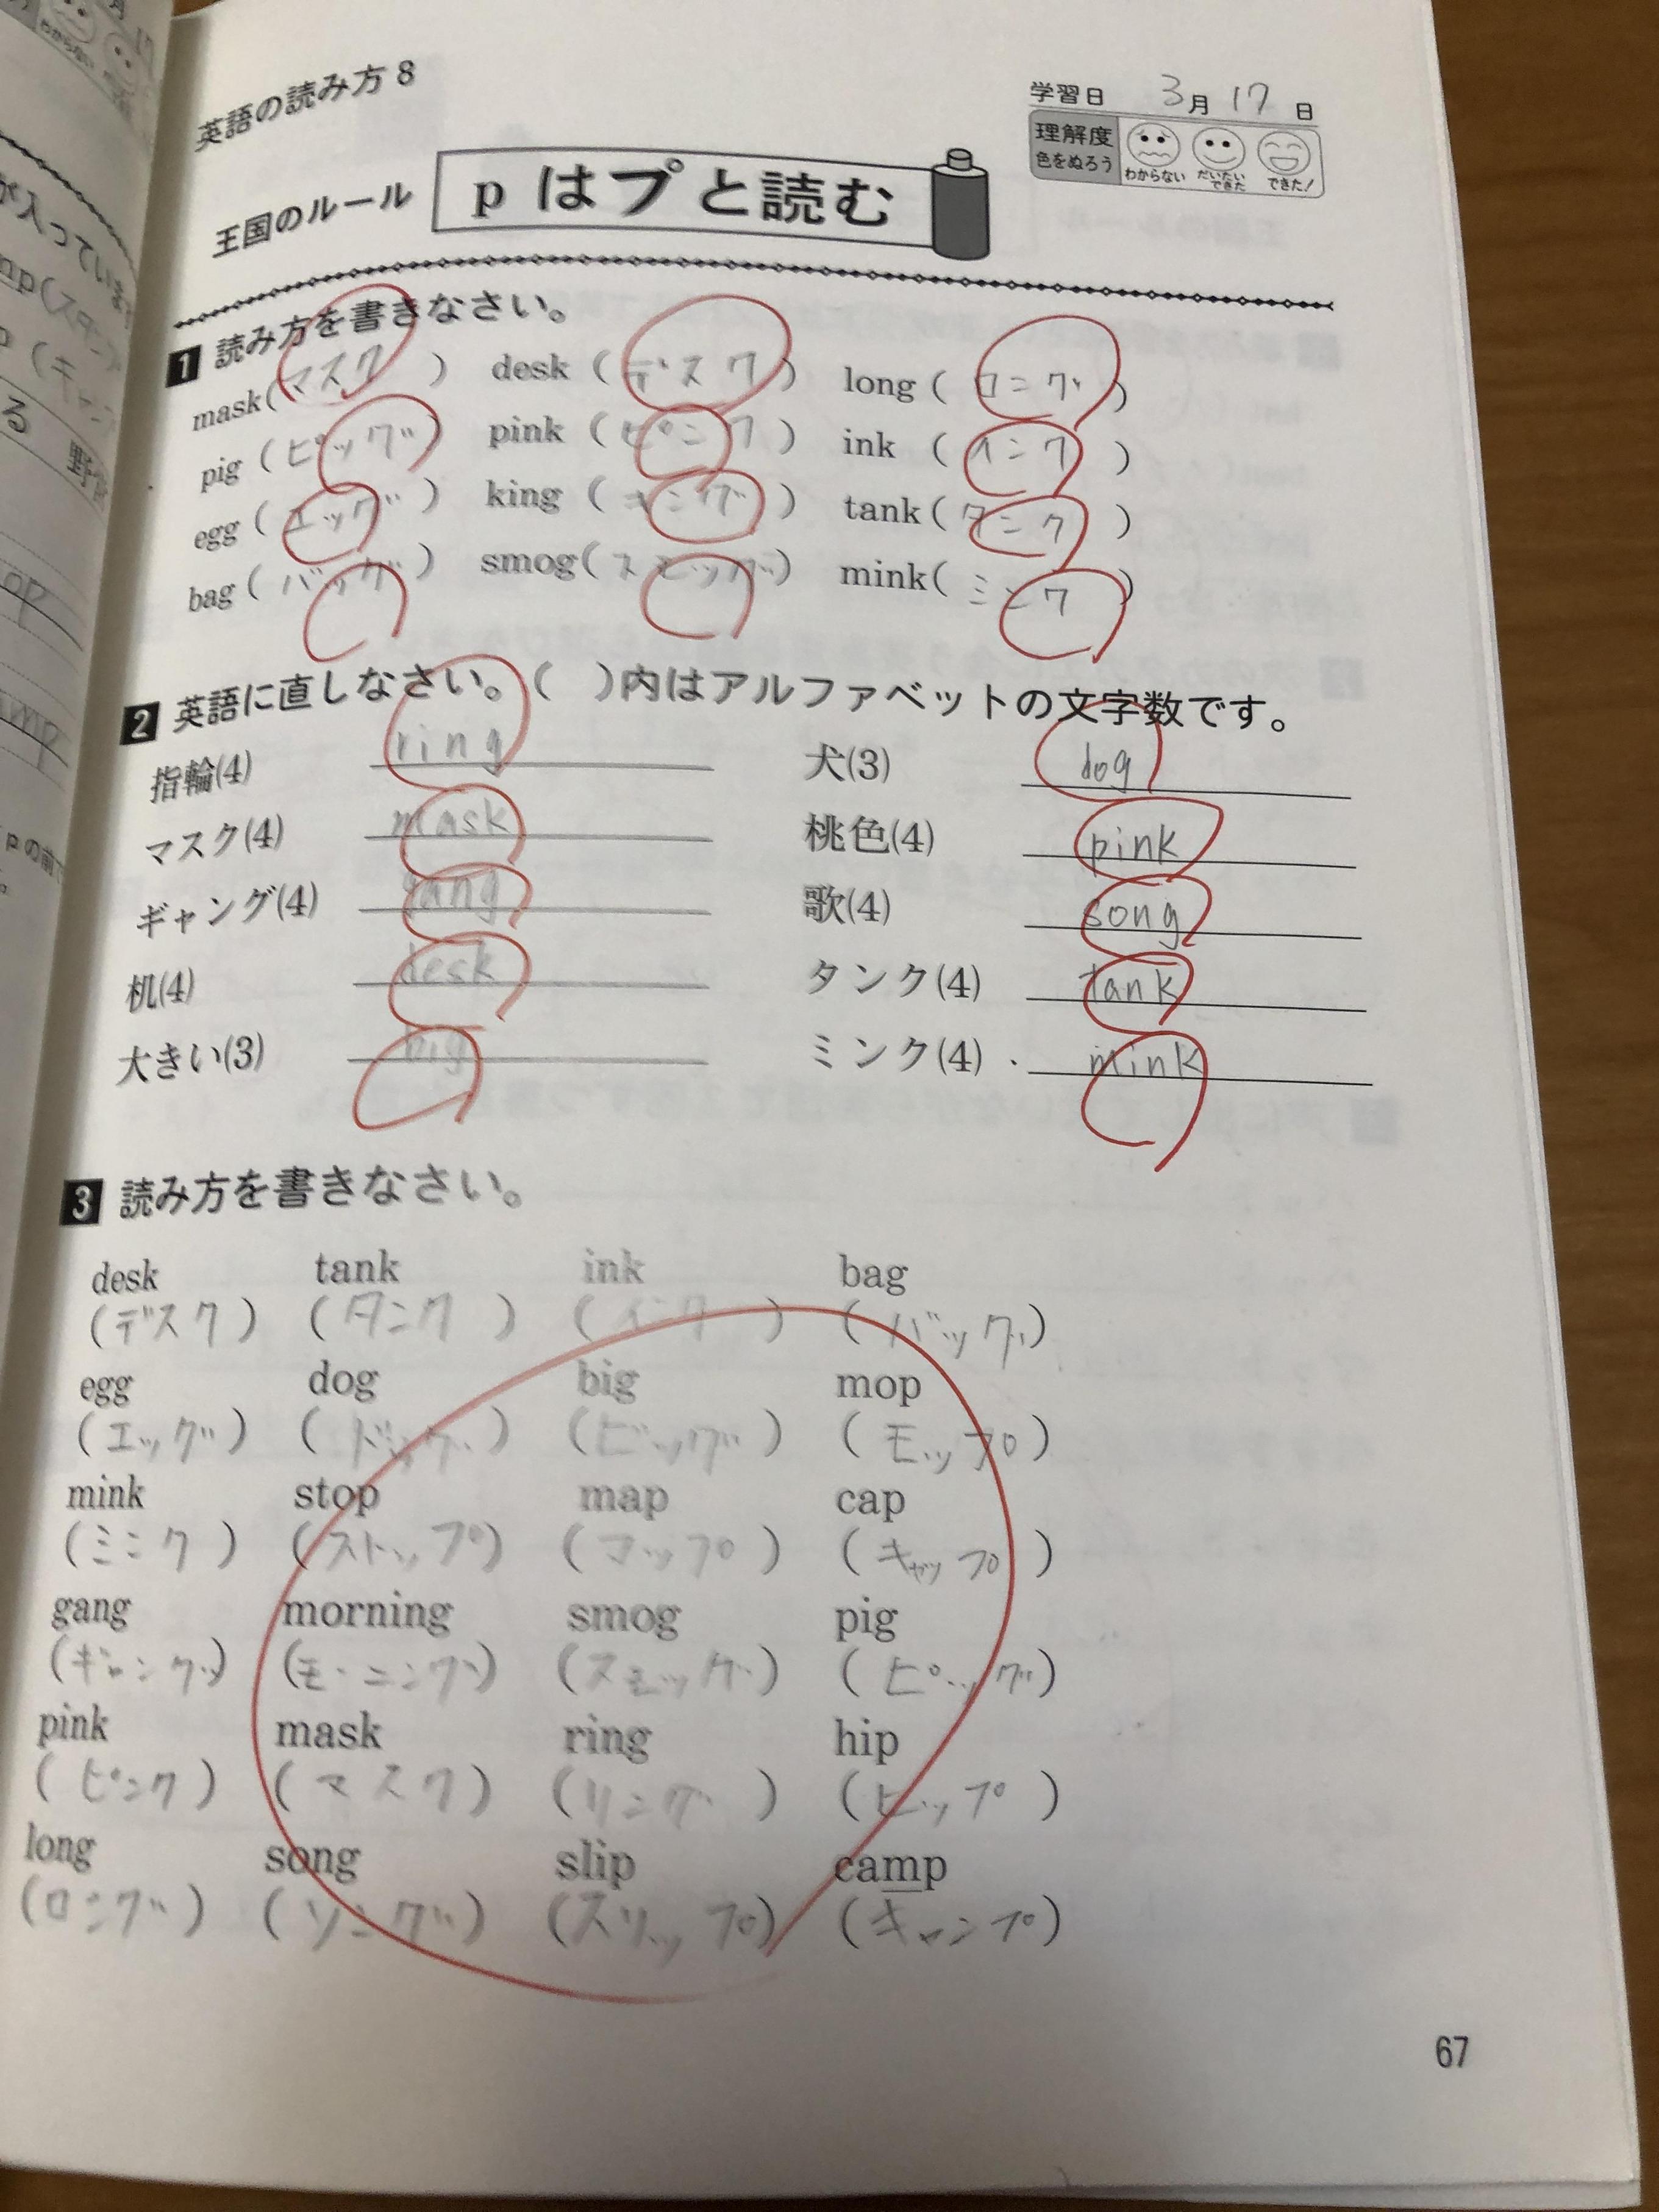 英語の読み方 8
学習日 3月 17日
理解度
色をぬろう
わからない だいたいできた できた!
王国のルール p はプと読む
1 読み方を書きなさい。
mask(マスク) desk(デスク) long(ロング)
pig(ピッグ) pink(ピンク) ink(インク)
egg(エッグ) king(キング) tank(タンク)
bag(バッグ) smog(スモッグ) mink(ミンク)
2 英語に直しなさい。( )内はアルファベットの文字数です。
指輪(4) ring 犬(3) dog
マスク(4) mask 桃色(4) pink
ギャング(4) gang 歌(4) song
机(4) desk タンク(4) tank
大きい(3) big ミンク(4) mink
3 読み方を書きなさい。
desk tank ink bag
(デスク) (タンク) (インク) (バッグ)
egg dog big mop
(エッグ) (ドッグ) (ビッグ) (モップ)
mink stop map cap
(ミンク) (ストップ) (マップ) (キャップ)
gang morning smog pig
(ギャング) (モーニング) (スモッグ) (ピッグ)
pink mask ring hip
(ピンク) (マスク) (リング) (ヒップ)
long song slip camp
(ロング) (ソング) (スリップ) (キャンプ)
67